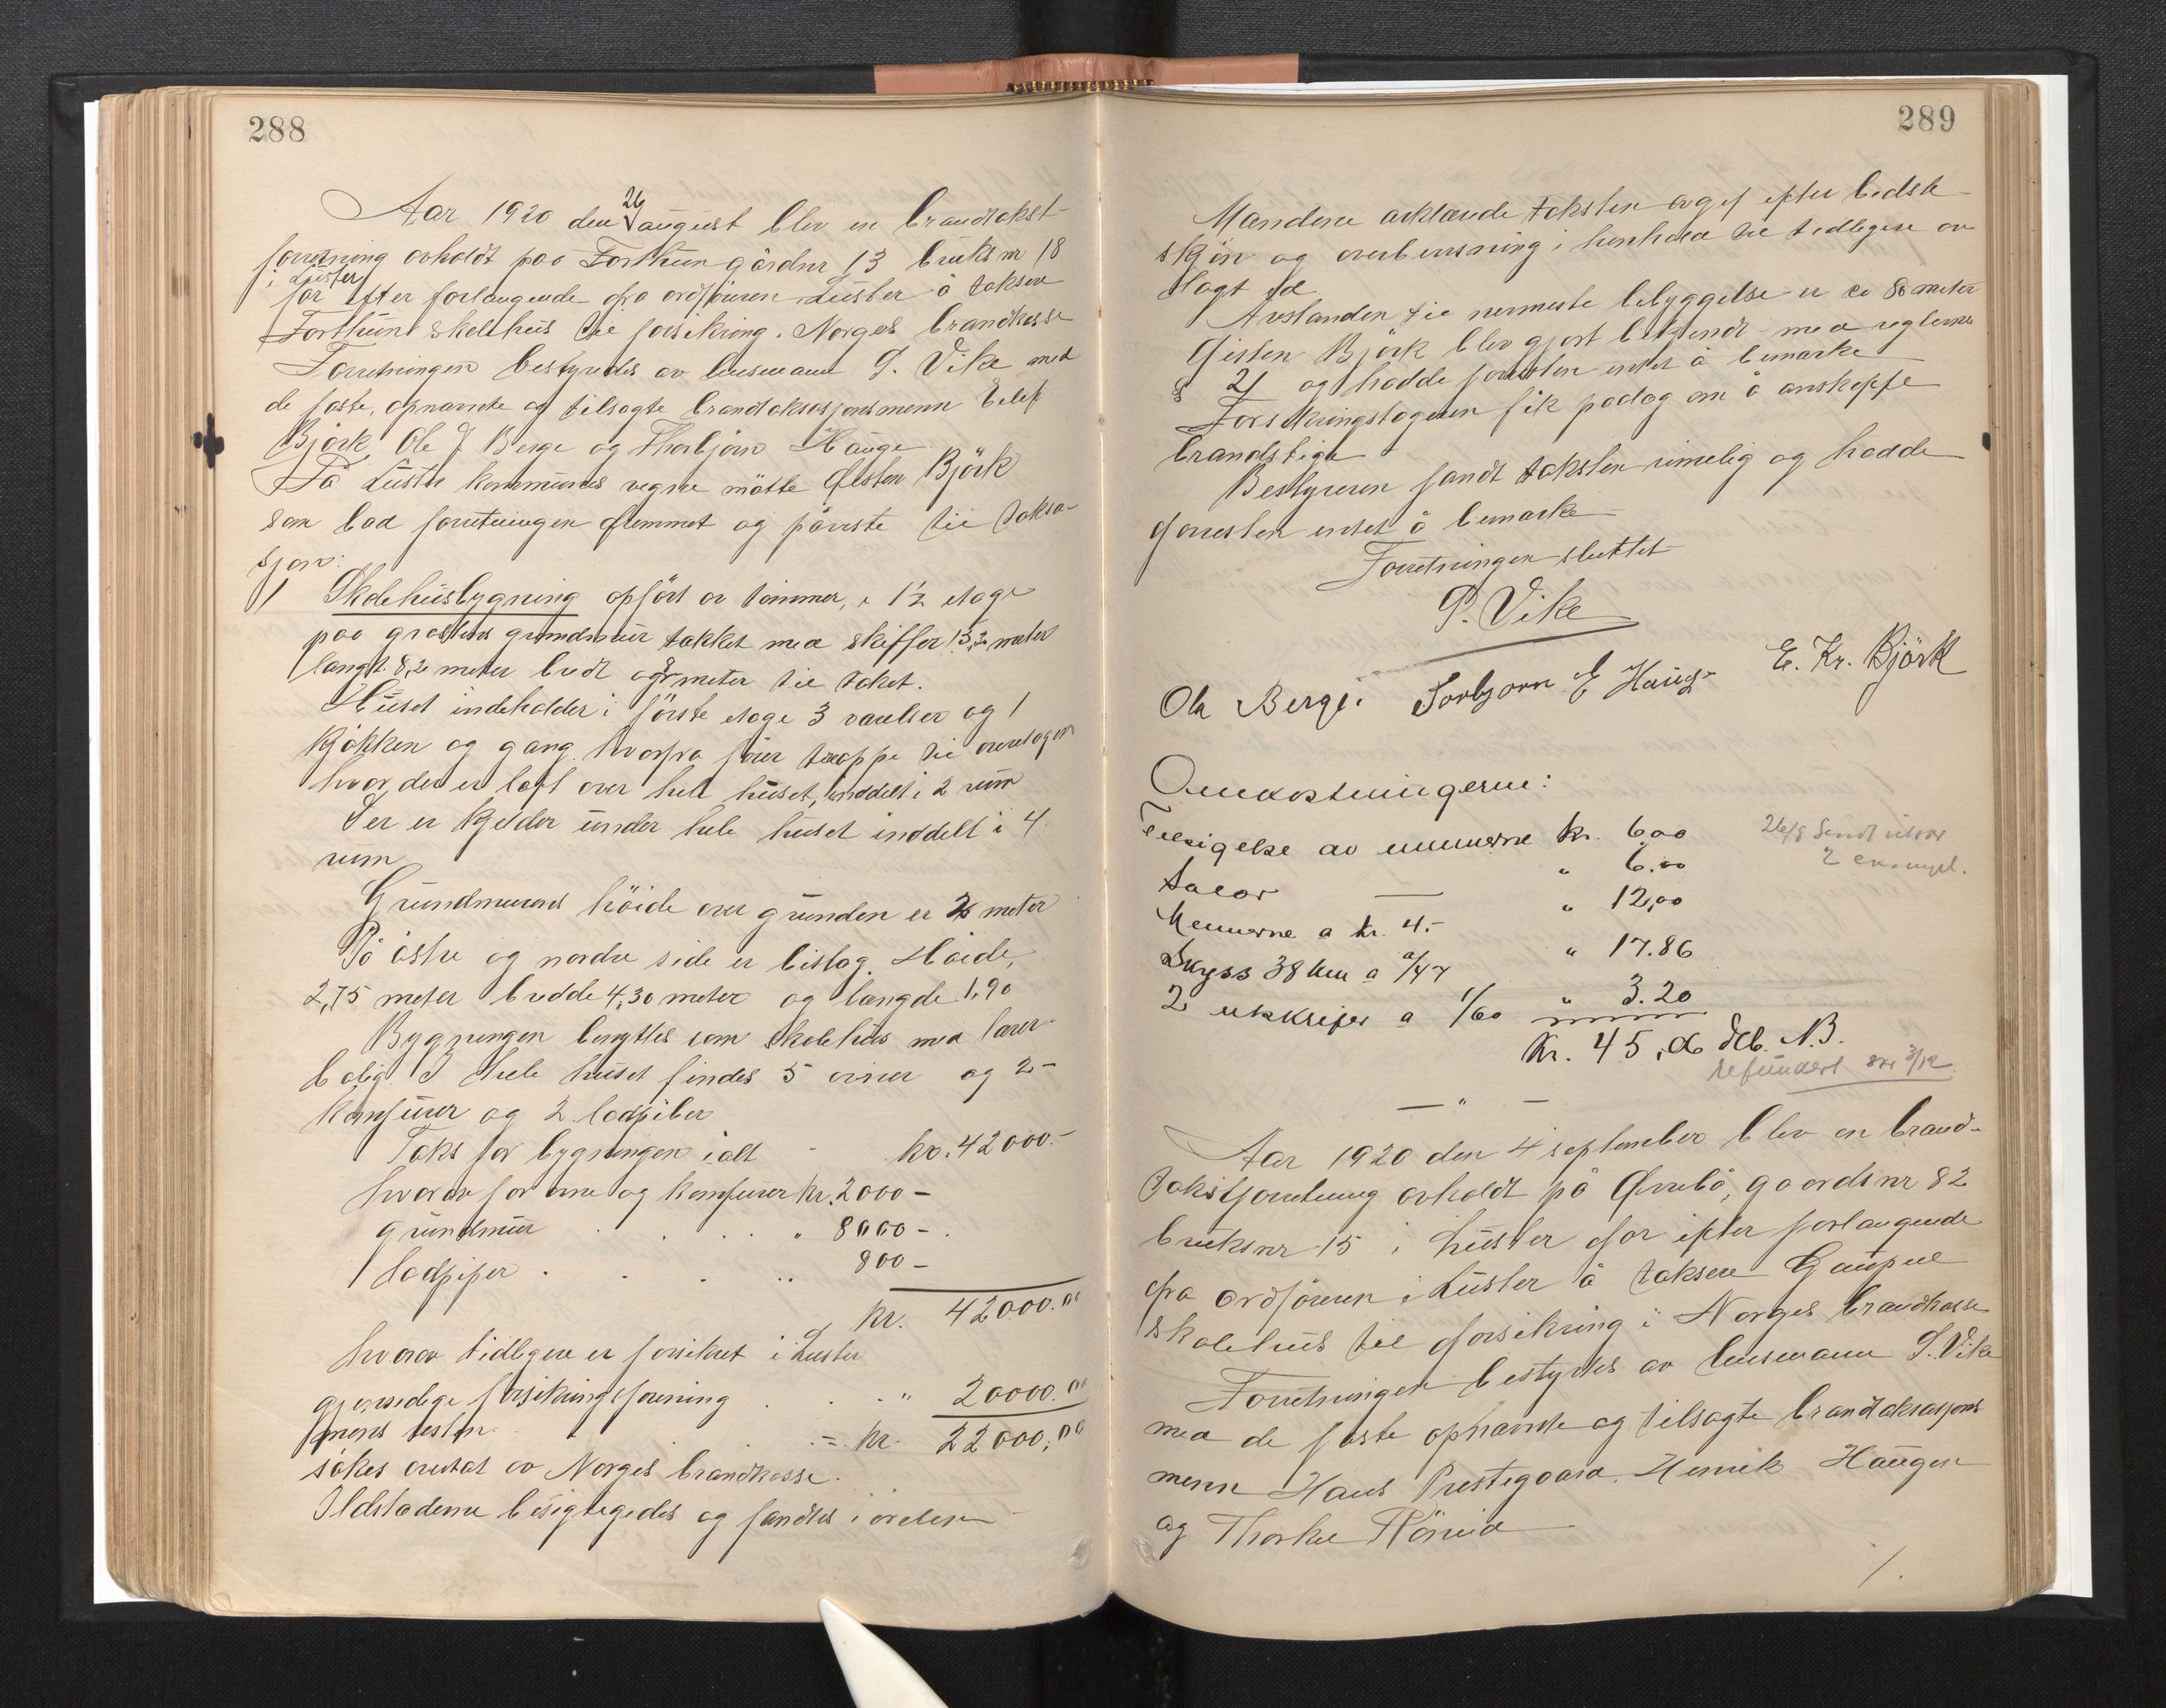 288
Aar 1920 den 26 august blev en brandtakst
forretning avholdt paa Forthun gårdnr 13 bruksnr 18
i Luster
for efter forlangende fra ordføreren i Luster å taksere
Forthun skolehus til forsikring i Norges brandkasse
Forretningen bestyredes av lensmann P. Vike med
de faste, opnævnte og tilsagte brandtaksasjonsmenn Eilef
Björk Ole J Berge og Thorbjörn Hauge
På Luster kommunes vegne mötte Gisten Björk
som bad forretningen fremmet og påviste til taksa-
sjon:
1 Skolehusbygning opfört av tömmer, i 1½ etage
paa graastens grundmur takket med skiffer 13,2 meter
langt. 8,2 meter bredt og meter til taket.
Huset indeholder i förste etage 3 værelser og 1
kjökken og gang hvorfra förer trappe til overetagen
hvor der er loft over hele huset, inddelt i 2 rum
Der er kjelder under hele huset inddelt i 4
rum
Grundmurens höide over grunden er 2 meter
På östre og nordre side er bislag. Höide,
2,75 meter bredde 4,30 meter og længde 1,90
Bygningen benyttes som skolehus med lærer
bolig. I hele huset findes 5 ovner og 2 -
komfurer og 2 lodpiber
Takst for bygningen ialt - kr. 42000.-
hvorav for ovne og komfurer kr. 2000 -
grundmur . . . . " 8000 -
Lodpiper . . . .. 800 -
kr. 42000.00
hvorav tidligere er forsikret i Luster
gjensidige forsikringsforening . . . " 20000.00
mens resten . . = kr. 22000,00
sökes overtat av Norges brandkasse.
Ildstederne besigtigedes og fandtes i orden
289
Mændene erklærede taksten avgit efter bedste
skjön og overbevisning i henhold til tidligere av
lagt ed
Avstanden til nermeste bebyggelse er ca 80 meter
Gisten Björk blev gjort bekjendt med reglerne
§ 21 og hadde forresten intet å bemærke
Forsikringstageren fik paalæg om å anskaffe
brandstige
Bestyreren fandt taksten rimelig og hadde
forresten intet å bemærke
Forretningen sluttet
P. Vike
Ole Berge. Torbjørn E Hauge E. Kr. Björk
Omkostningerne:
Tilsigelse av mennerne kr. 6,00 26/8 Sendt
Salær — " 6.00 2 eksempl.
Mennerne a kr. 4.- " 12,00
Skyss 38 km a /47 " 17.86
2 utskrifter a 1/60 " 3.20
Kr. 45,06 Deb. N.B.
refundert 3/12
— " —
Aar 1920 den 4 september blev en brand-
takstforretning avholdt på Øvrebö, gaardsnr 82
bruksnr 15 i Luster for efter forlangende
fra ordføreren i Luster å taksere Gaupne
skolehus til forsikring i Norges brandkasse
Forretningen bestyrtes av lensmann P. Vike
med de faste opnævnte og tilsagte brandtaksasjons
menn Hans Prestegaard. Henrik Haugen
og Thorke Röneid